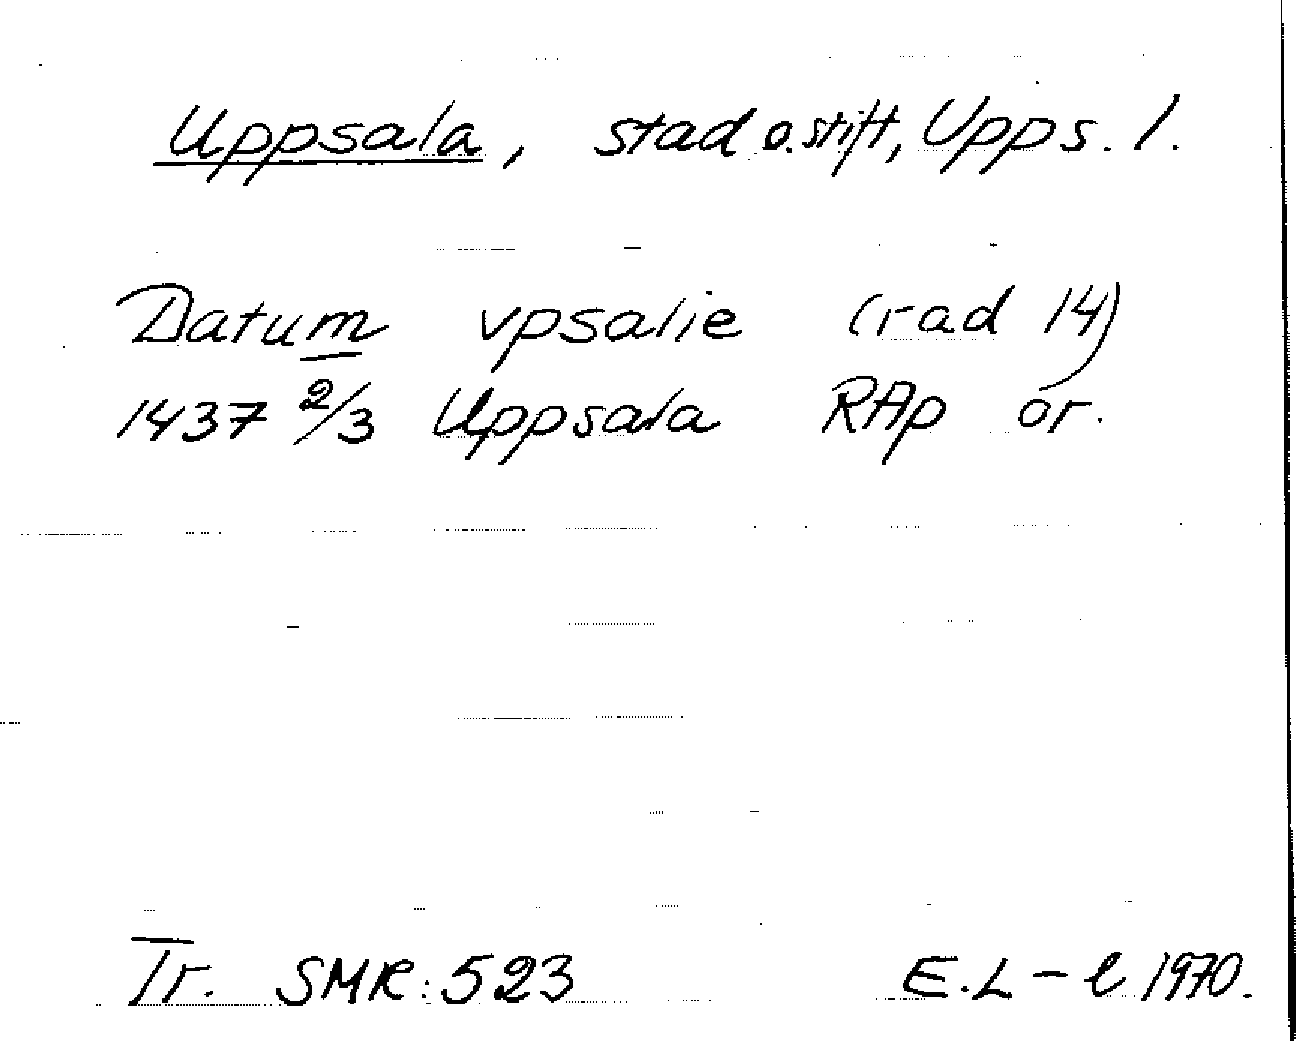 Uppsala, stad o. stift, Upps. l.
Datum vpsalie (rad 14)
1437 2/3 Uppsala RAp or.
Tr. SMR: 523 E.L-l 1970.